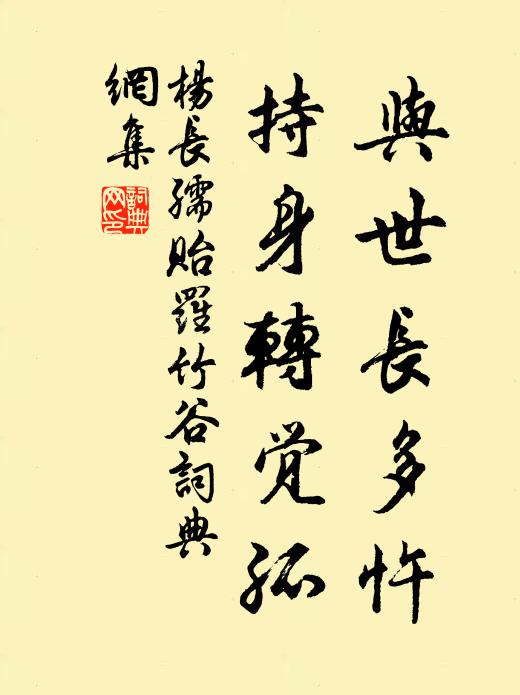 與世長多忤
持身轉觉孤
楊長孺貽羅竹谷詞典
網集
詞典
网印